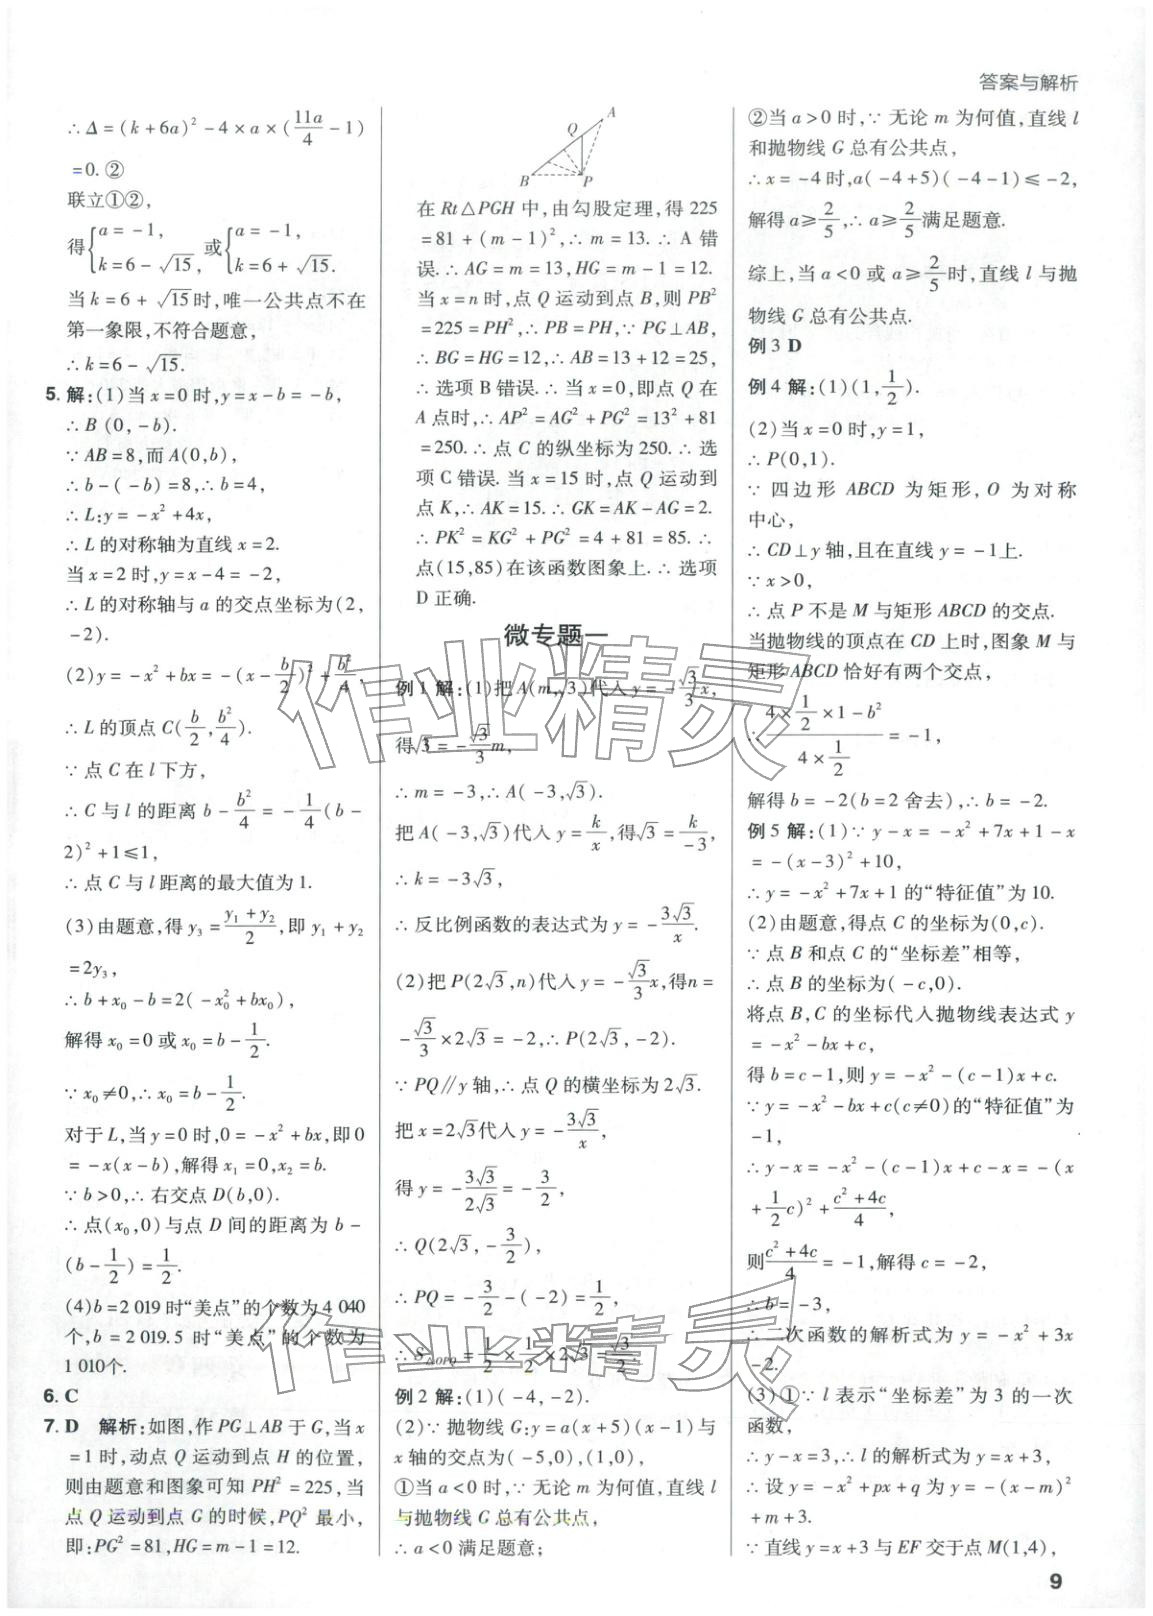 答案与解析
∴Δ=(k+6a)²-4×a×(11a/4-1)
=0. ②
联立①②,
得{a=-1, k=6-√15, 或{a=-1, k=6+√15.
当k=6+√15时,唯一公共点不在
第一象限,不符合题意,
∴k=6-√15.
5. 解:(1)当x=0时,y=x-b=-b,
∴B(0,-b).
∵AB=8,而A(0,b),
∴b-(-b)=8,∴b=4,
∴L:y=-x²+4x,
∴L的对称轴为直线x=2.
当x=2时,y=x-4=-2,
∴L的对称轴与a的交点坐标为(2,
-2).
(2)y=-x²+bx=-(x-b/2)²+b²/4,
∴L的顶点C(b/2,b²/4).
∵点C在l下方,
∴C与l的距离b-b²/4=-1/4(b-
2)²+1≤1,
∴点C与l距离的最大值为1.
(3)由题意,得y₃=(y₁+y₂)/2,即y₁+y₂
=2y₃,
∴b+x₀-b=2(-x₀²+bx₀),
解得x₀=0或x₀=b-1/2.
∵x₀≠0,∴x₀=b-1/2.
对于L,当y=0时,0=-x²+bx,即0
=-x(x-b),解得x₁=0,x₂=b.
∵b>0,∴右交点D(b,0).
∴点(x₀,0)与点D间的距离为b-
(b-1/2)=1/2.
(4)b=2 019时“美点”的个数为4 040
个,b=2 019.5时“美点”的个数为
1 010个.
6. C
7. D 解析:如图,作PG⊥AB于G,当x
=1时,动点Q运动到点H的位置,
则由题意和图象可知PH²=225,当
点Q运动到点G的时候,PQ²最小,
即:PG²=81,HG=m-1=12.
A
Q
B
P
在Rt△PGH中,由勾股定理,得225
=81+(m-1)²,∴m=13.∴A错
误.∴AG=m=13,HG=m-1=12.
当x=n时,点Q运动到点B,则PB²
=225=PH²,∴PB=PH,∵PG⊥AB,
∴BG=HG=12,∴AB=13+12=25,
∴选项B错误.∴当x=0,即点Q在
A点时,∴AP²=AG²+PG²=13²+81
=250.∴点C的纵坐标为250.∴选
项C错误.当x=15时,点Q运动到
点K,∴AK=15.∴GK=AK-AG=2.
∴PK²=KG²+PG²=4+81=85.∴
点(15,85)在该函数图象上.∴选项
D正确.
微专题一
例1 解:(1)把A(m,√3)代入y=-√3/3x,
得√3=-√3/3m,
∴m=-3,∴A(-3,√3).
把A(-3,√3)代入y=k/x,得√3=k/-3,
∴k=-3√3,
∴反比例函数的表达式为y=-3√3/x.
(2)把P(2√3,n)代入y=-√3/3x,得n=
-√3/3×2√3=-2,∴P(2√3,-2).
∵PQ∥y轴,∴点Q的横坐标为2√3.
把x=2√3代入y=-3√3/x,
得y=-3√3/2√3=-3/2,
∴Q(2√3,-3/2),
∴PQ=-3/2-(-2)=1/2,
∴S△OPQ=1/2×1/2×2√3=√3/2.
例2 解:(1)(-4,-2).
(2)∵抛物线G:y=a(x+5)(x-1)与
x轴的交点为(-5,0),(1,0),
①当a<0时,∵无论m为何值,直线l
与抛物线G总有公共点,
∴a<0满足题意;
②当a>0时,∵无论m为何值,直线l
和抛物线G总有公共点,
∴x=-4时,a(-4+5)(-4-1)≤-2,
解得a≥2/5,∴a≥2/5满足题意.
综上,当a<0或a≥2/5时,直线l与抛
物线G总有公共点.
例3 D
例4 解:(1)(1,1/2).
(2)当x=0时,y=1,
∴P(0,1).
∵四边形ABCD为矩形,O为对称
中心,
∴CD⊥y轴,且在直线y=-1上.
∵x>0,
∴点P不是M与矩形ABCD的交点.
当抛物线的顶点在CD上时,图象M与
矩形ABCD恰好有两个交点,
∴(4×1/2×1-b²)/(4×1/2)=-1,
解得b=-2(b=2舍去),∴b=-2.
例5 解:(1)∵y-x=-x²+7x+1-x
=-(x-3)²+10,
∴y=-x²+7x+1的“特征值”为10.
(2)由题意,得点C的坐标为(0,c).
∵点B和点C的“坐标差”相等,
∴点B的坐标为(-c,0).
将点B,C的坐标代入抛物线表达式y
=-x²-bx+c,
得b=c-1,则y=-x²-(c-1)x+c.
∵y=-x²-bx+c(c≠0)的“特征值”为
-1,
∴y-x=-x²-(c-1)x+c-x=-(x
+1/2c)²+(c²+4c)/4,
则(c²+4c)/4=-1,解得c=-2,
∴b=-3,
∴二次函数的解析式为y=-x²+3x
-2.
(3)①∵l表示“坐标差”为3的一次
函数,
∴y-x=3,∴l的解析式为y=x+3,
∴设y=-x²+px+q为y=-(x-m)²
+m+3.
∵直线y=x+3与EF交于点M(1,4),
9
作业精灵
作业精灵